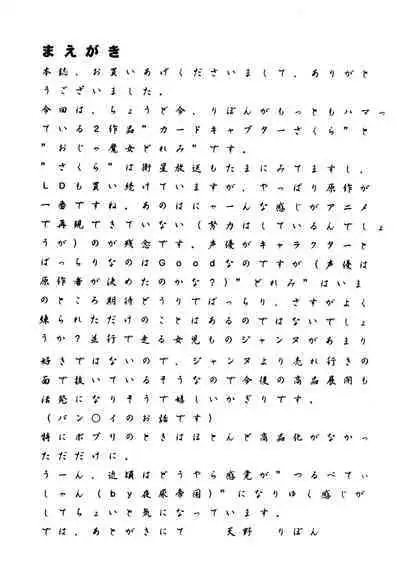 まえがき
本誌、お買いあげくださいまして、ありがと
うございました。
今回は、ちょうど今、りぼんがもっともハマっ
ている２作品”カードキャプターさくら”と
”おじゃ魔女どれみ”です。
”さくら”は衛星放送もたまにみてますし、
ＬＤも買い続けていますが、やっぱり原作が
一番ですね。あのはにゃーんな感じがアニメ
で再現できていない（努力はしているんでしょ
うが）のが残念です。声優がキャラクターと
ばっちりなのはＧｏｏｄなのですが（声優は
原作者が決めたのかな？）”どれみ”はいま
のところ期待どうりでばっちり、さすがよく
練られただけのことはあるのではないでしょ
うか？並行で走る女児ものジャンヌがあまり
好きではないので、ジャンヌより売れ行きの
面で抜いているそうなので今後の商品展開も
活発になりそうで嬉しいかぎりです。
（バン〇イのお話です）
特にポプリのときはほとんど商品化がなかっ
ただけに。
うーん、近頃はどうやら感覚が”つるぺてぃ
しゃん（ｂｙ夜尿帝国）”になりゆく感じが
してちょいと気になっています。
では、あとがきにて　天野　りぼん